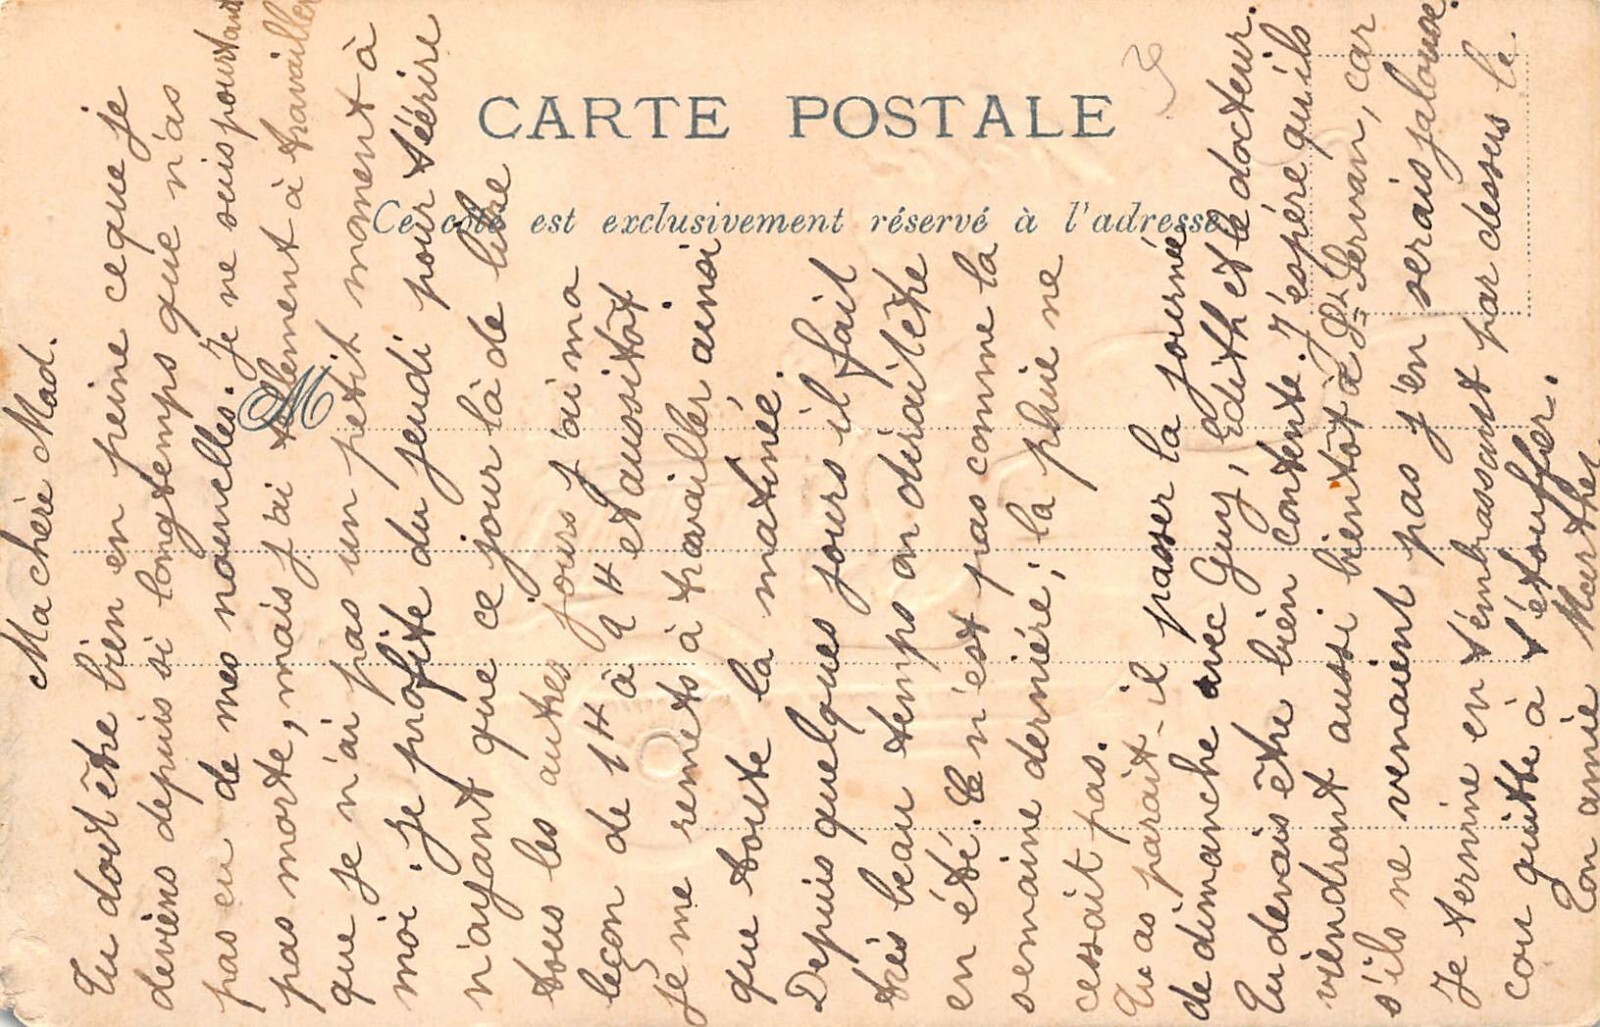 CARTE POSTALE
Ce côté est exclusivement réservé à l'adresse
M
Ma chère Mad.
Tu doit être bien en peine ce que je
deviens depuis si longtemps que n'as
pas eu de mes nouvelles. Je ne suis pourtant
pas morte, mais j'ai tellement à travailler
que je n'ai pas un petit moment à
moi. Je profite du jeudi pour t'éérire
n'ayant que ce jour là de libre
tous les autres jours j'ai ma
leçon de 1H à 4H et aussitôt
je me remets à travailler ainsi
que toute la matinée.
Depuis quelques jours il fait
très beau temps on dirait être
en été. Ce n'est pas comme la
semaine dernière; la pluie ne
cessait pas.
Tu as parait-il passer la journée
de dimanche avec Guy, Edith et le docteur.
Tu devais être bien contente. J'espère qu'ils
viendront aussi bientôt à St Servan, car
s'ils ne venaient pas j'en serais jalouse.
Je termine en t'embrassant par dessus le
cou quitte à t'étouffer.
Ton amie Marthe